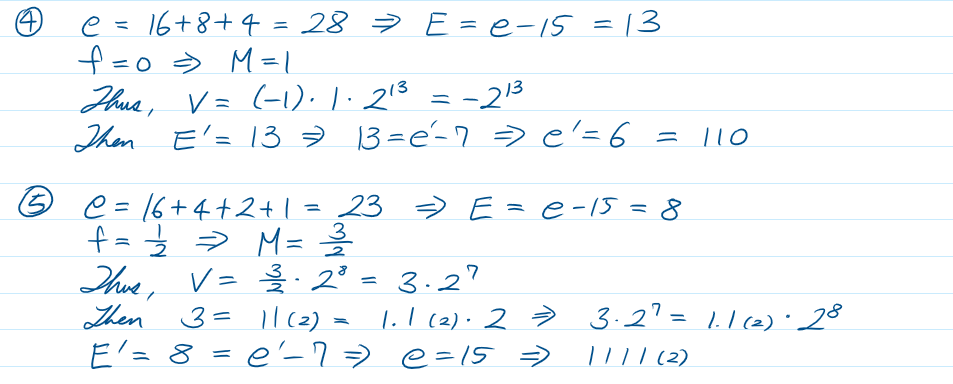 ④ e = 16+8+4 = 28 ⇒ E = e-15 = 13
f = 0 ⇒ M = 1
Thus, V = (-1)· 1 · 2^13 = -2^13
Then E' = 13 ⇒ 13 = e'-7 ⇒ e' = 6 = 110
⑤ e = 16+4+2+1 = 23 ⇒ E = e-15 = 8
f = 1/2 ⇒ M = 3/2
Thus, V = 3/2 · 2^8 = 3·2^7
Then 3 = 11(2) = 1.1(2)· 2 ⇒ 3·2^7 = 1.1(2)· 2^8
E' = 8 = e'-7 ⇒ e = 15 ⇒ 1111(2)